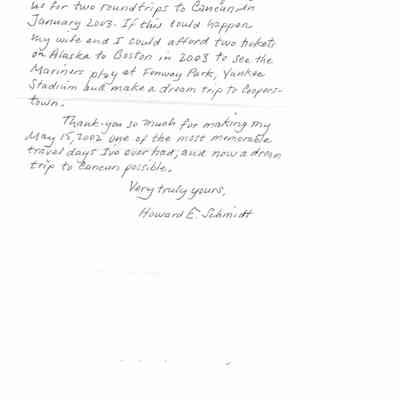 us for two roundtrips to Cancun in
January 2003. If this could happen
my wife and I could afford two tickets
on Alaska to Boston in 2003 to see the
Mariners play at Fenway Park, Yankee
Stadium and make a dream trip to Coopers-
town.
Thank-you so much for making my
May 15, 2002 one of the most memorable
travel days I've ever had, and now a dream
trip to Cancun possible.
Very truly yours,
Howard E. Schmidt